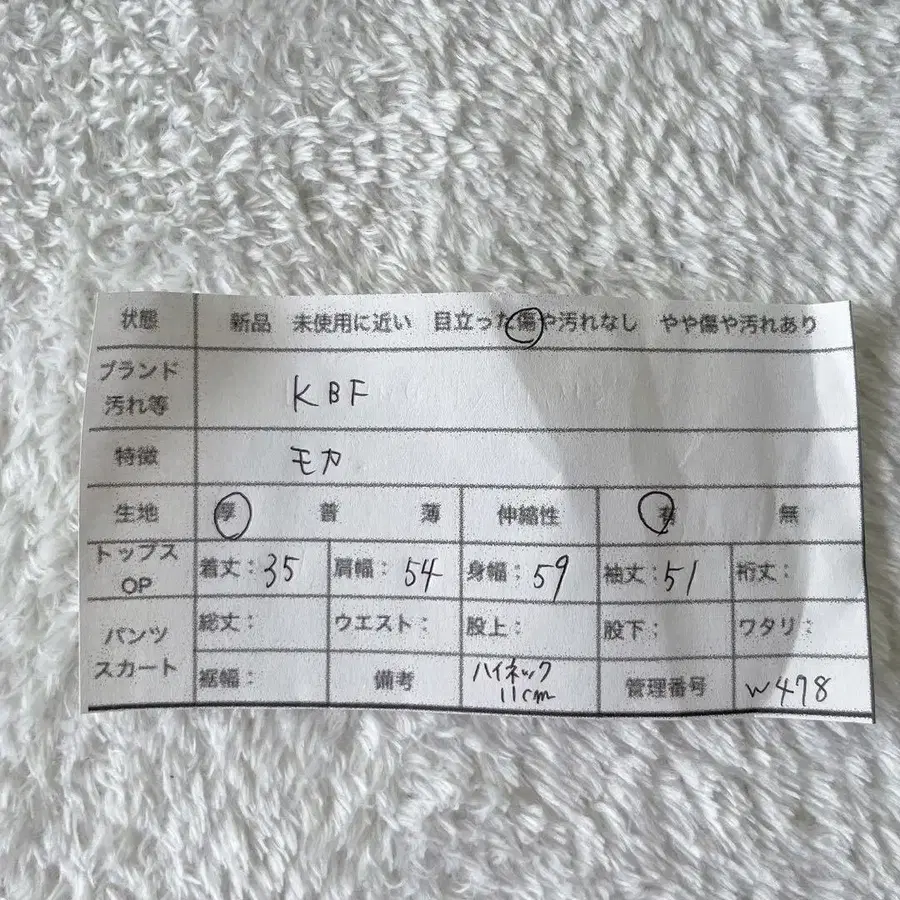 状態 新品 未使用に近い 目立った傷や汚れなし やや傷や汚れあり
ブランド
汚れ等 KBF
特徴 モカ
生地 厚 普 薄 伸縮性 有 無
トップス
OP 着丈：35 肩幅：54 身幅：59 袖丈：51 裄丈：
パンツ
スカート 総丈： ウエスト： 股上： 股下： ワタリ：
裾幅： 備考 ハイネック
11cm 管理番号 w478